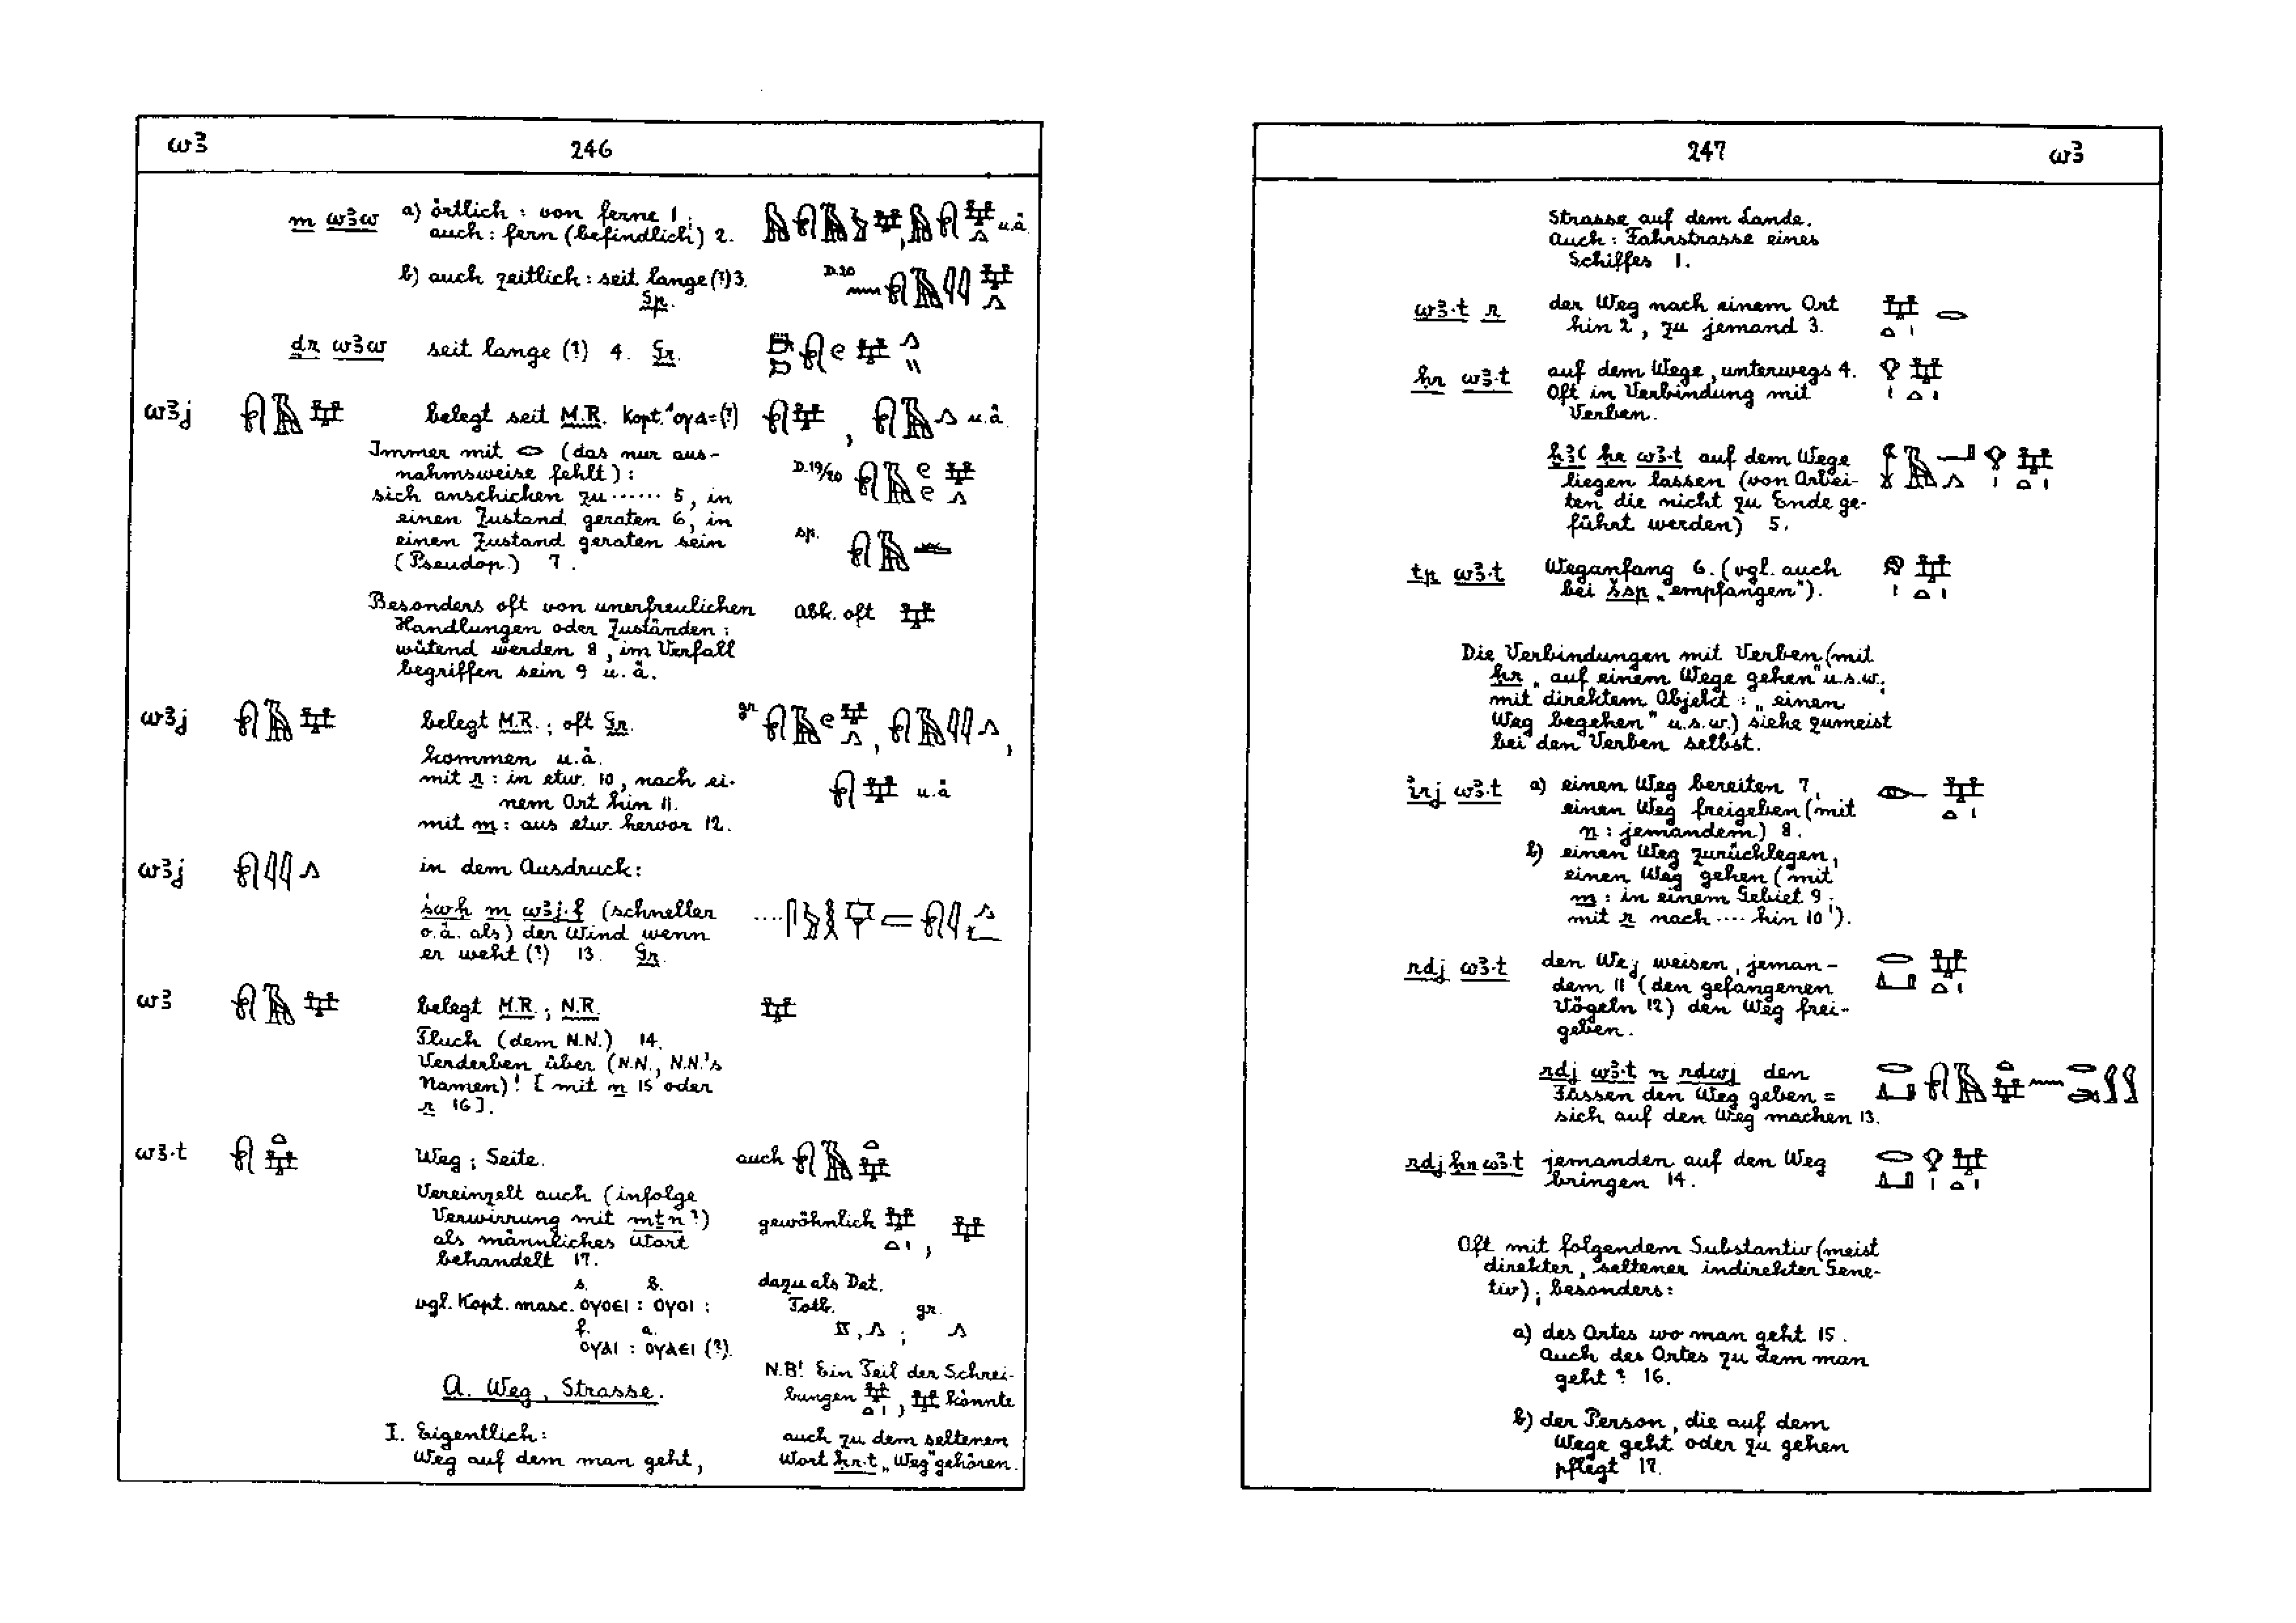 wꜣ 246
m wꜣw a) örtlich : von ferne 1 ;
auch : fern (befindlich) 2. u.ä.
b) auch zeitlich : seit lange (?) 3. D.20
Sp.
dr wꜣw seit lange (?) 4. Gr.
wꜣj belegt seit M.R. Kopt. u.ä.
Immer mit 𓂋 (das nur aus-
nahmsweise fehlt) : D.19/20
sich anschicken zu ...... 5, in
einen Zustand geraten 6, in
einen Zustand geraten sein sp.
(Pseudop.) 7.
Besonders oft von unerfreulichen Abk. oft
Handlungen oder Zuständen :
wütend werden 8, im Verfall
begriffen sein 9 u.ä.
wꜣj belegt M.R. ; oft Gr. gr.
kommen u.ä.
mit r : in etw. 10, nach ei- u.ä
nem Ort hin 11.
mit m : aus etw. hervor 12.
wꜣj in dem Ausdruck :
śwḥ m wꜣj.f (schneller
o.ä. als) der Wind wenn
er weht (?) 13. Gr.
wꜣ belegt M.R. ; N.R.
Fluch (dem N.N.) 14.
Verderben über (N.N., N.N.'s
Namen)! [mit n 15 oder
r 16].
wꜣ.t Weg ; Seite. auch
Vereinzelt auch (infolge
Verwirrung mit mṯn?) gewöhnlich
als männliches Wort
behandelt 17.
s. b. dazu als Det.
vgl. Kopt. masc. ⲟⲩⲟⲉⲓ : ⲟⲩⲟⲓ : Totb. gr.
f. a.
ⲟⲩⲁⲓ : ⲟⲩⲁⲉⲓ (?).
N.B! Ein Teil der Schrei-
A. Weg, Strasse. bungen könnte
I. Eigentlich : auch zu dem seltenen
Weg auf dem man geht, Wort ḥr.t „Weg" gehören.
247 wꜣ
Strasse auf dem Lande.
Auch : Fahrstrasse eines
Schiffes 1.
wꜣ.t r der Weg nach einem Ort
hin 2, zu jemand 3.
ḥr wꜣ.t auf dem Wege, unterwegs 4.
Oft in Verbindung mit
Verben.
ḫꜣꜥ ḥr wꜣ.t auf dem Wege
liegen lassen (von Arbei-
ten die nicht zu Ende ge-
führt werden) 5.
tp wꜣ.t Weganfang 6. (vgl. auch
bei šsp „empfangen").
Die Verbindungen mit Verben (mit
ḥr „auf einem Wege gehen" u.s.w.;
mit direktem Objekt : „einen
Weg begehen" u.s.w.) siehe zumeist
bei den Verben selbst.
irj wꜣ.t a) einen Weg bereiten 7,
einen Weg freigeben (mit
n : jemandem) 8.
b) einen Weg zurücklegen,
einen Weg gehen (mit
m : in einem Gebiet 9 ;
mit r nach .... hin 10).
rdj wꜣ.t den Weg weisen, jeman-
dem 11 (den gefangenen
Vögeln 12) den Weg frei-
geben.
rdj wꜣ.t n rdwj den
Füssen den Weg geben =
sich auf den Weg machen 13.
rdj ḥr wꜣ.t jemanden auf den Weg
bringen 14.
Oft mit folgendem Substantiv (meist
direkter, seltener indirekter Gene-
tiv) ; besonders :
a) des Ortes wo man geht 15.
Auch des Ortes zu dem man
geht? 16.
b) der Person, die auf dem
Wege geht oder zu gehen
pflegt 17.